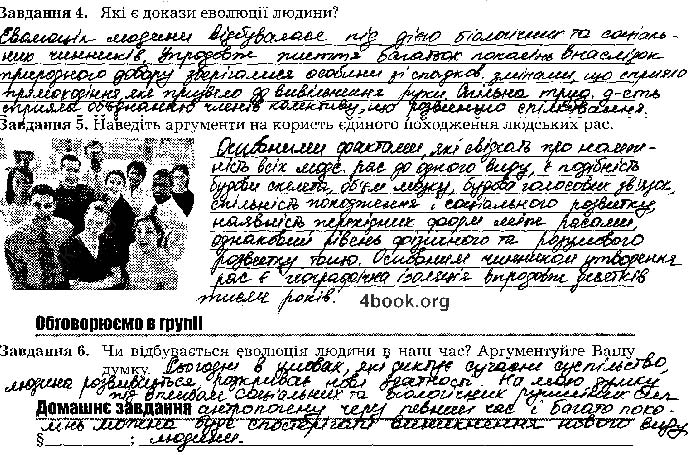 Завдання 4. Які є докази еволюції людини?
Еволюція людини відбувалася під дією біологічних та соціаль-
них чинників. Упродовж життя багатьох поколінь внаслідок
природного добору зберігалися особини зі спадков. змінами, що сприяло
прямоходіння, які призвело до вивільнення руки. Спільна труд. д-сть
сприяла об'єднанню членів колективу, що розвинуло спілкування.
Завдання 5. Наведіть аргументи на користь єдиного походження людських рас.
Основними фактами, які свідчать про належ-
ність всіх людс. рас до одного виду, є подібність
будови скелета, об'єм мозку, будова голосових зв'язок,
спільність походження і соціального розвитку,
наявність перехідних форм між расами,
однаковий рівень фізичного та розумового
розвитку тощо. Основним чинником утворення
рас є географічна ізоляція впродовж десятків
тисяч років.
4book.org
Обговорюємо в групі!
Завдання 6. Чи відбувається еволюція людини в наш час? Аргументуйте Вашу
думку. Сьогодні в умовах, які диктує сучасне суспільство,
людина розвивається, розкриває нові здатності. На мою думку
під впливом соціальних та біологічних рушійних сил
Домашнє завдання антропогену через певний час і багато поко-
лінь можна буде спостерігати виникнення нового виду
§ ; людини.